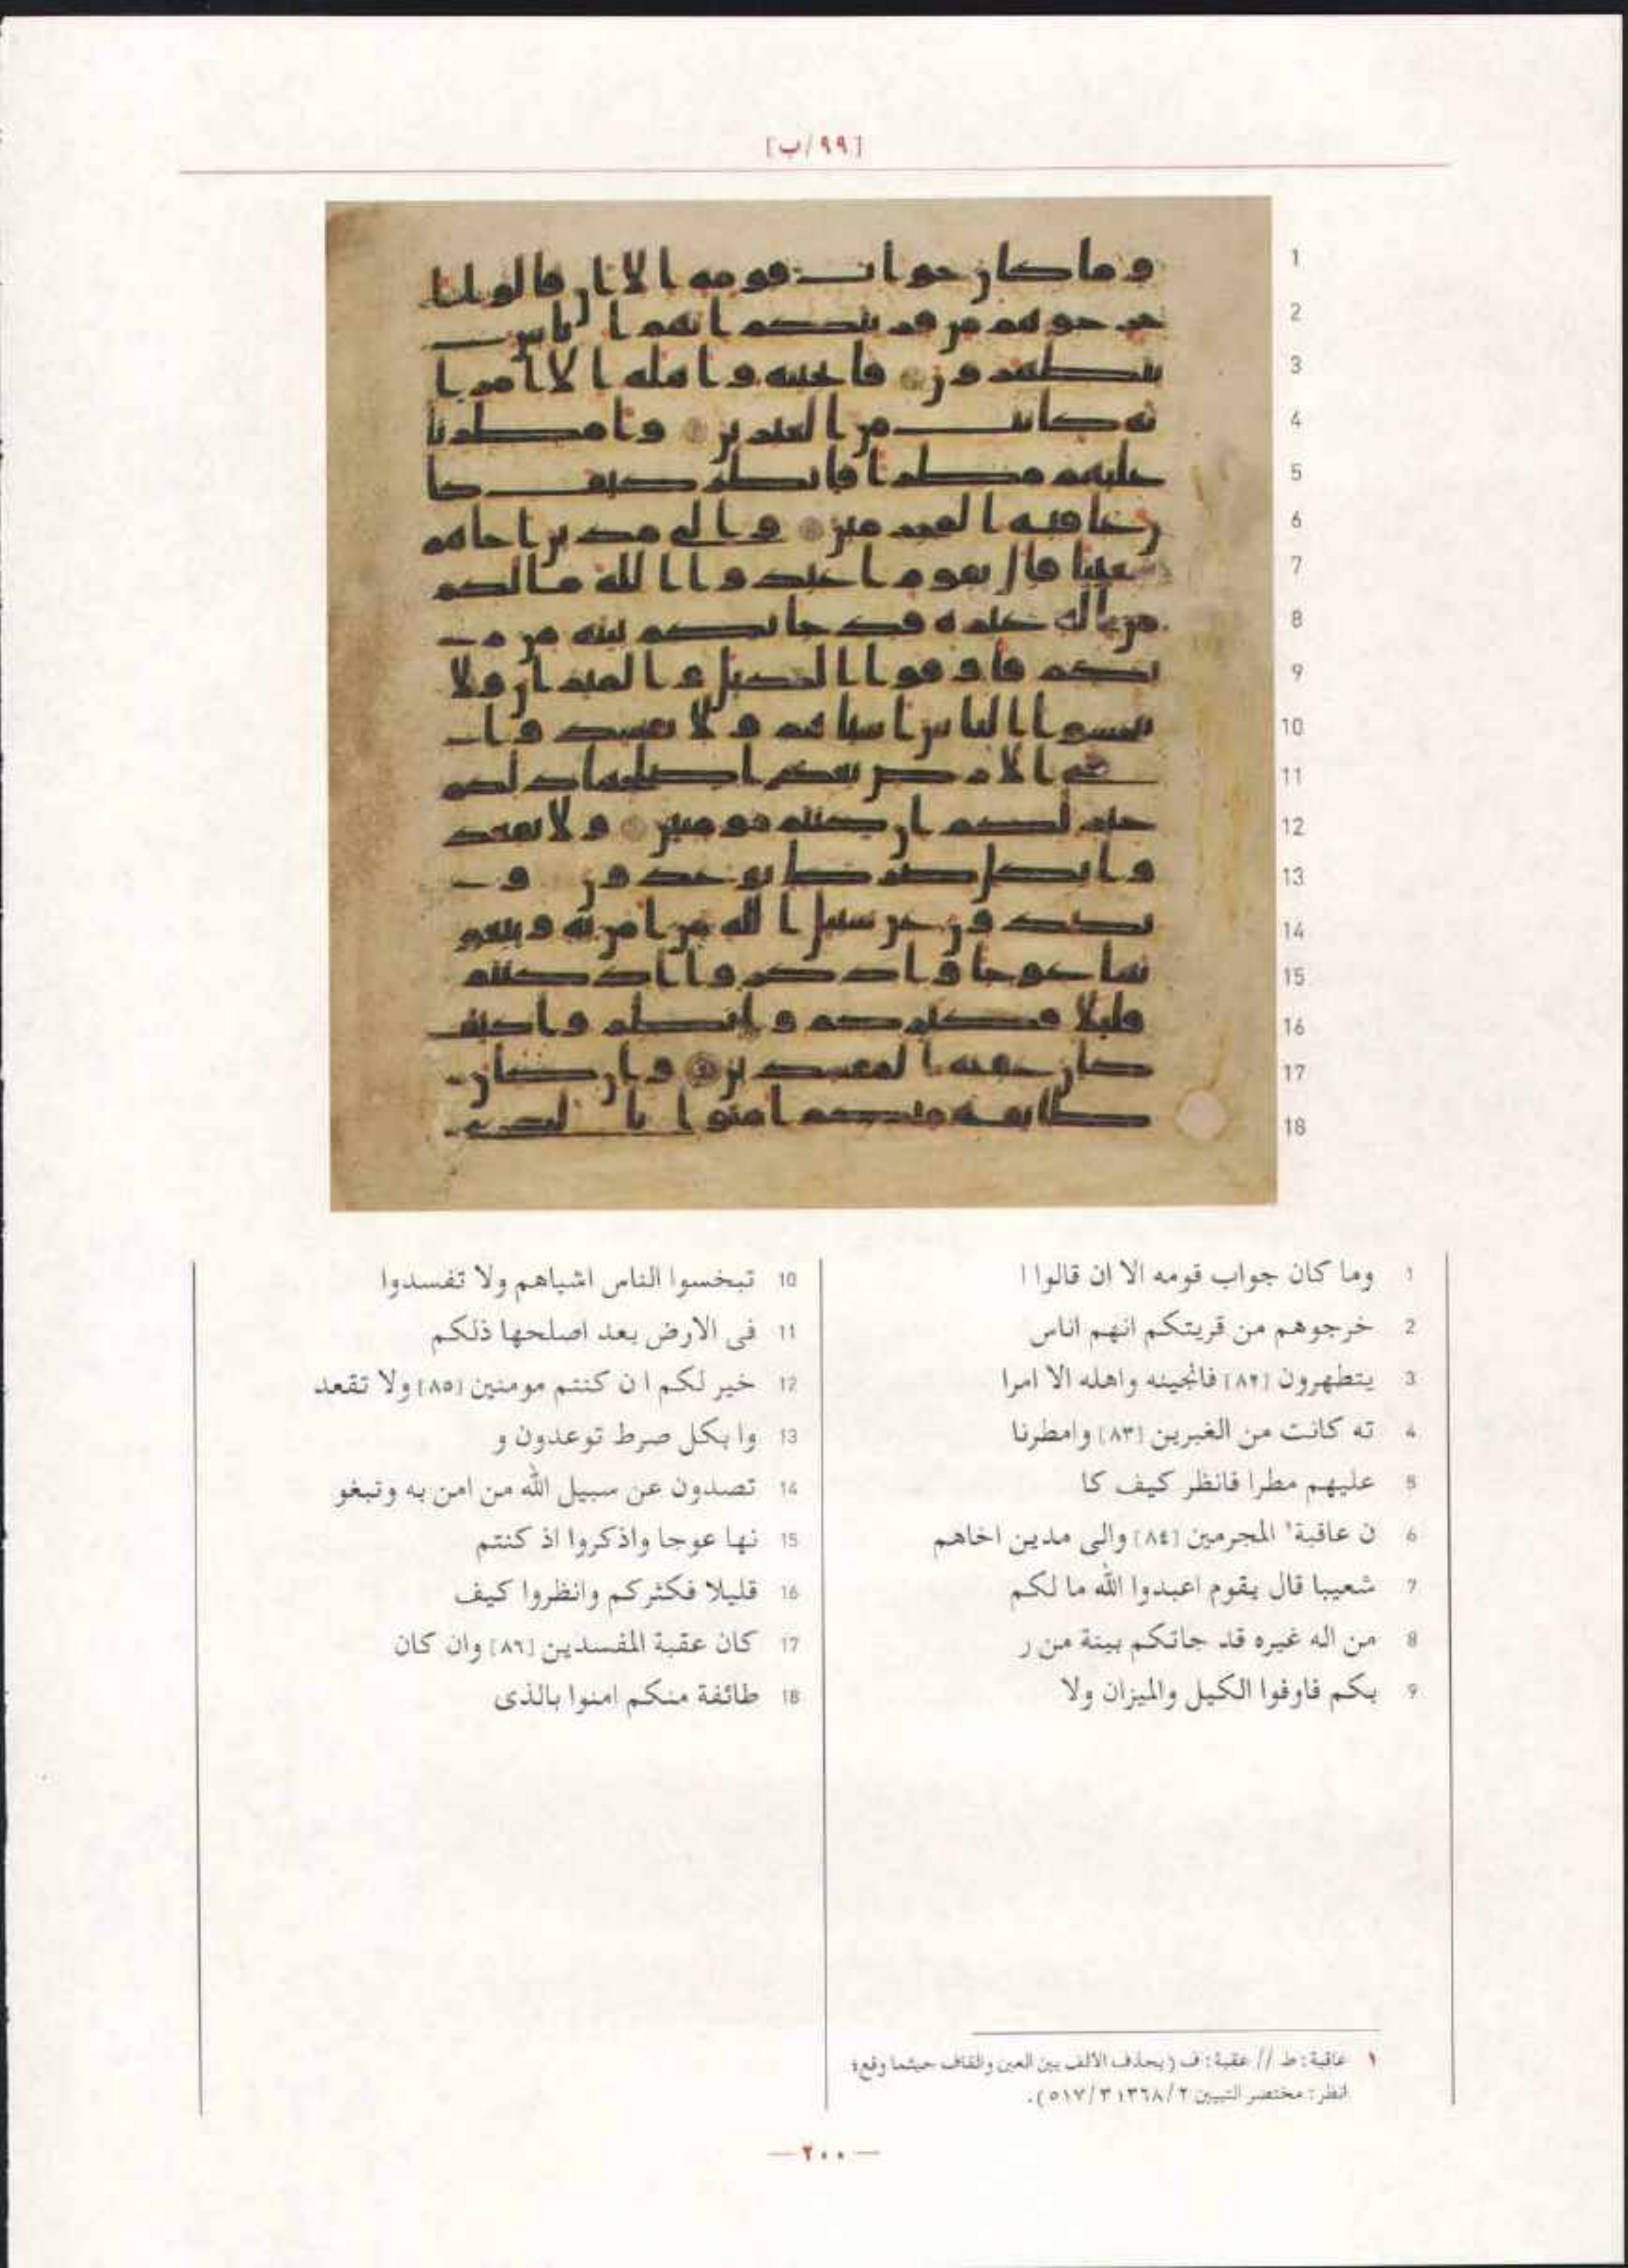 [٩٩/ب]
1 وما كان جواب قومه الا ان قالوا ا
2 خرجوهم من قريتكم انهم اناس
3 يتطهرون [٨٢] فانجينه واهله الا امرا
4 ته كانت من الغبرين [٨٣] وامطرنا
5 عليهم مطرا فانظر كيف كا
6 ن عاقبة١ المجرمين [٨٤] والى مدين اخاهم
7 شعيبا قال يقوم اعبدوا الله ما لكم
8 من اله غيره قد جاتكم بينة من ر
9 بكم فاوفوا الكيل والميزان ولا
10 تبخسوا الناس اشياهم ولا تفسدوا
11 فى الارض بعد اصلحها ذلكم
12 خير لكم ان كنتم مومنين [٨٥] ولا تقعد
13 وا بكل صرط توعدون و
14 تصدون عن سبيل الله من امن به وتبغو
15 نها عوجا واذكروا اذ كنتم
16 قليلا فكثركم وانظروا كيف
17 كان عقبة المفسدين [٨٦] وان كان
18 طائفة منكم امنوا بالذى
١ عاقبة: ط // عقبة: ف (بحذف الألف بين العين والقاف حيثما وقع؛
انظر: مختصر التبيين ٢/٣٦٨؛ ٣/٥١٧).
— ٢٠٠ —